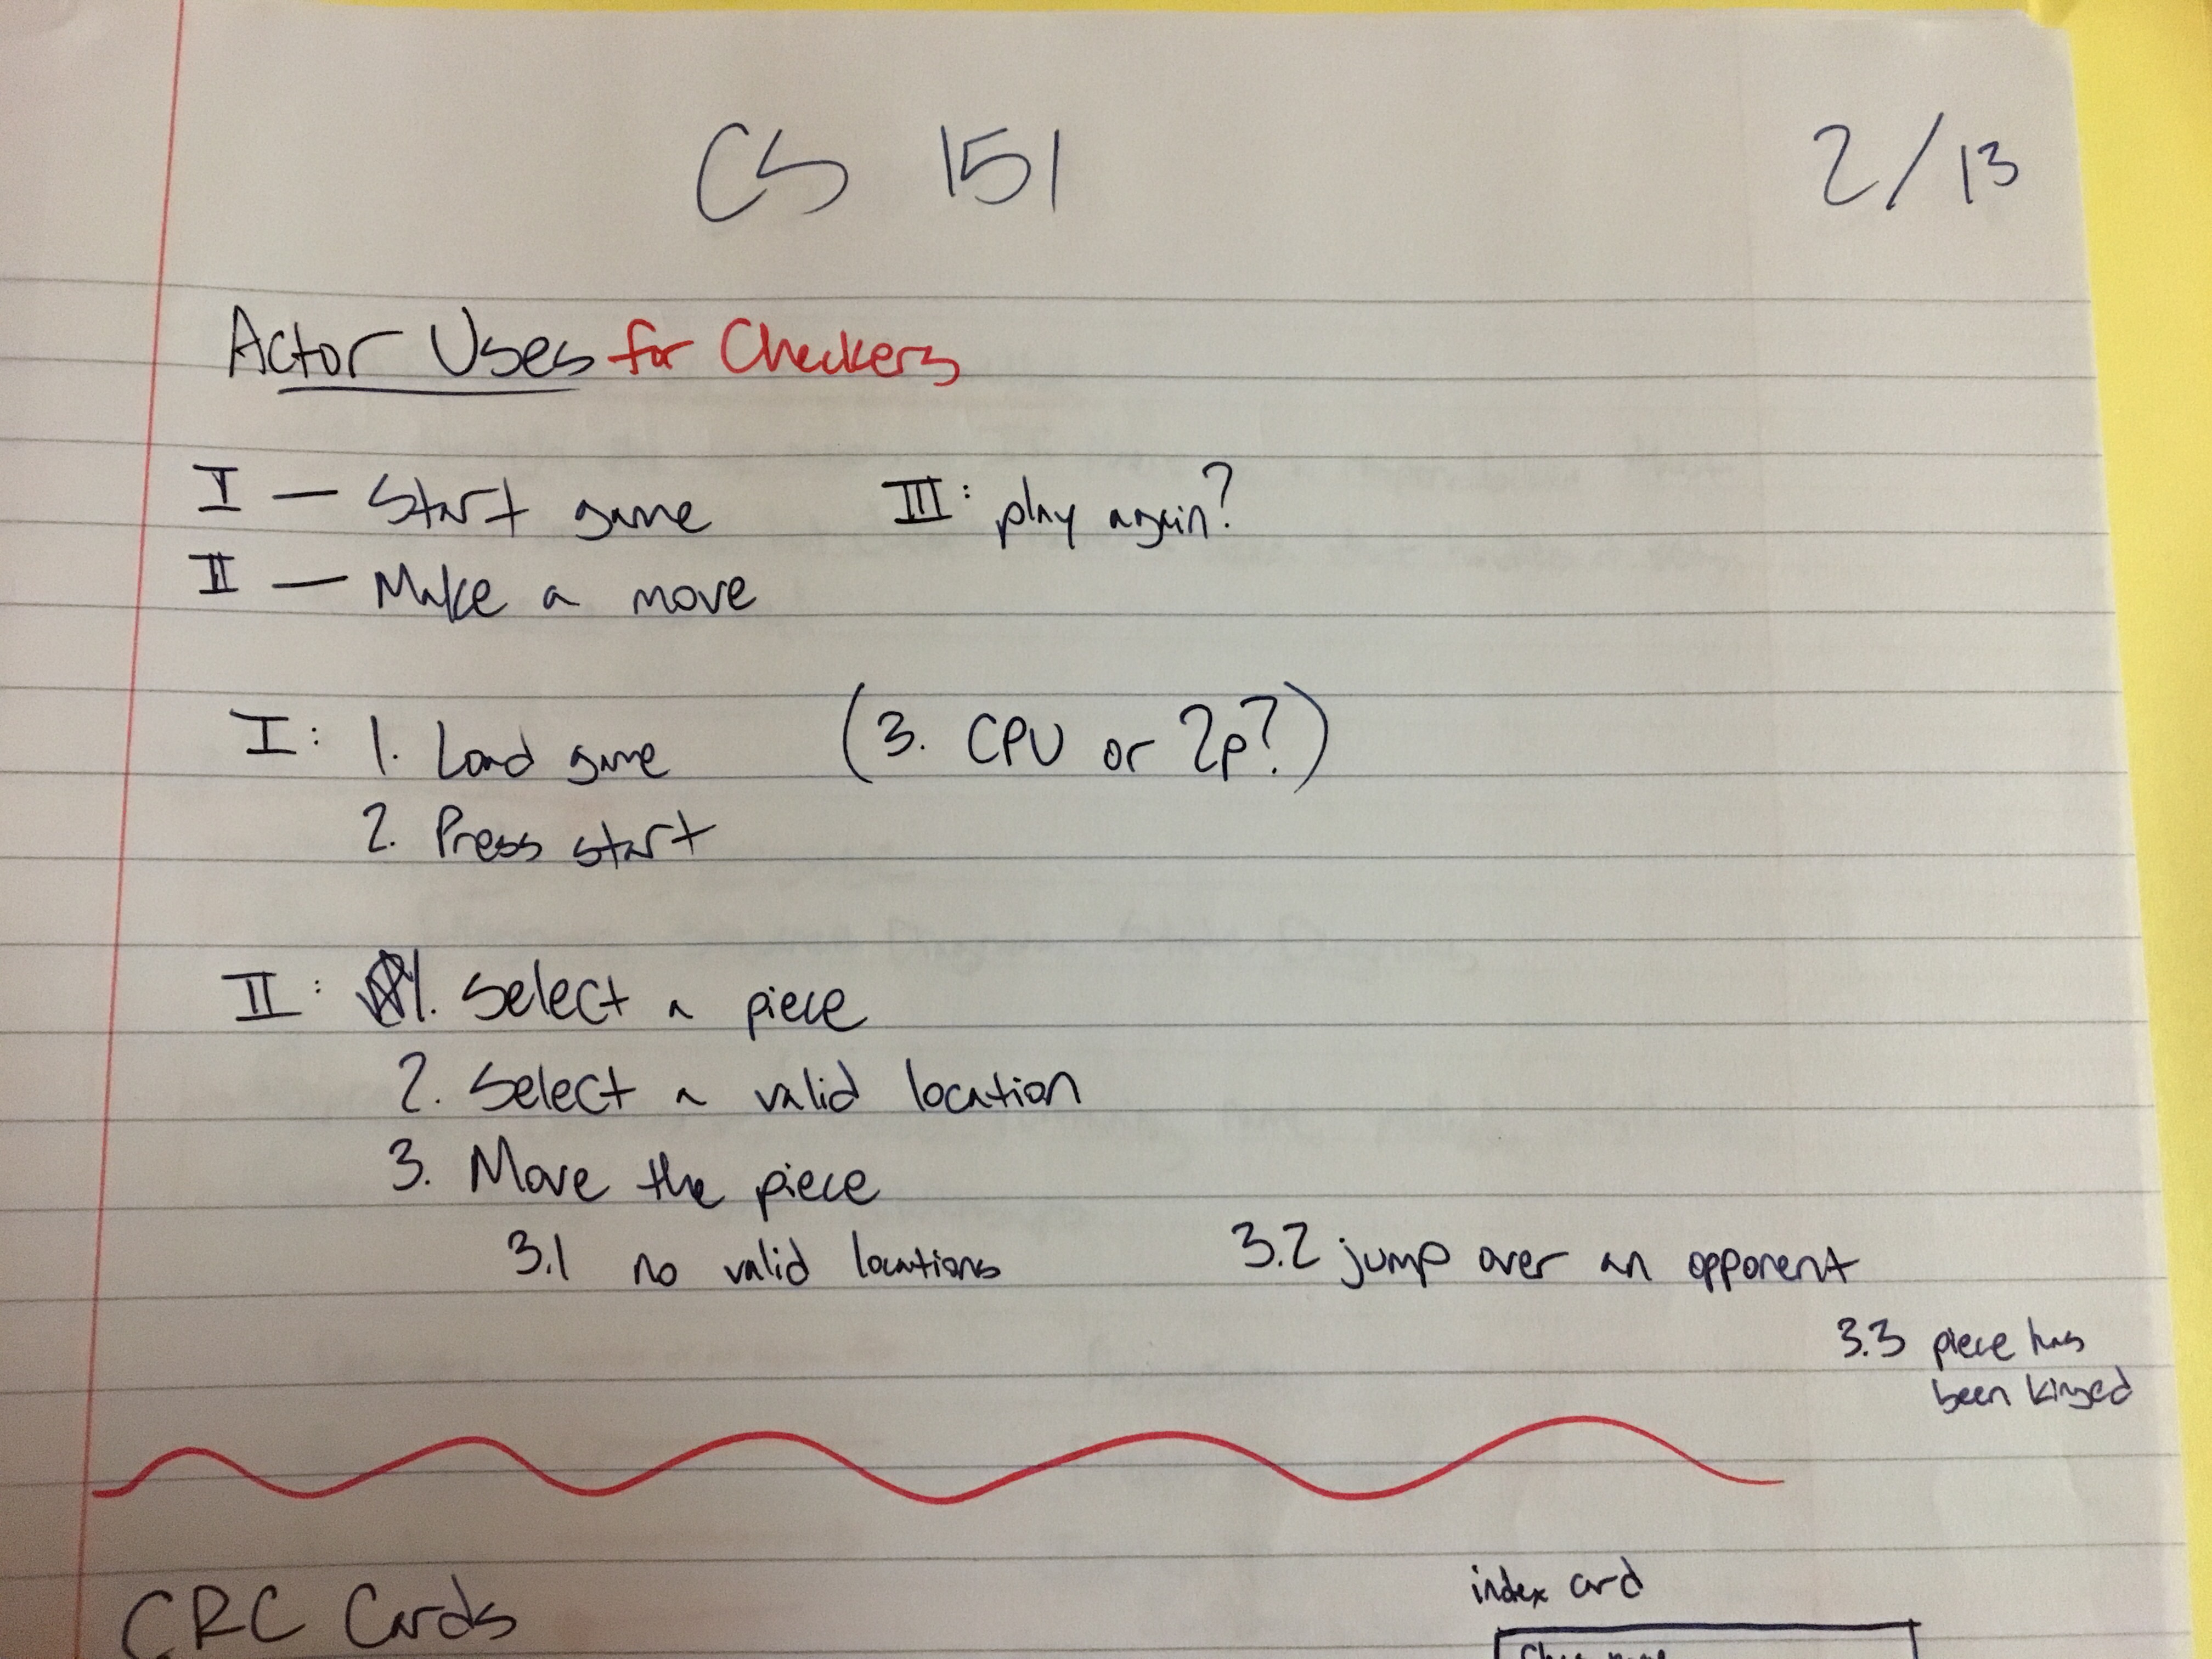 CS 151
2/13
Actor Uses for Checkers
I — Start game
III: play again?
II — Make a move
I: 1. Load game
(3. CPU or 2p?)
2. Press start
II: 1. Select a piece
2. Select a valid location
3. Move the piece
3.1 no valid locations
3.2 jump over an opponent
3.3 piece has
been kinged
CRC Cards
index card